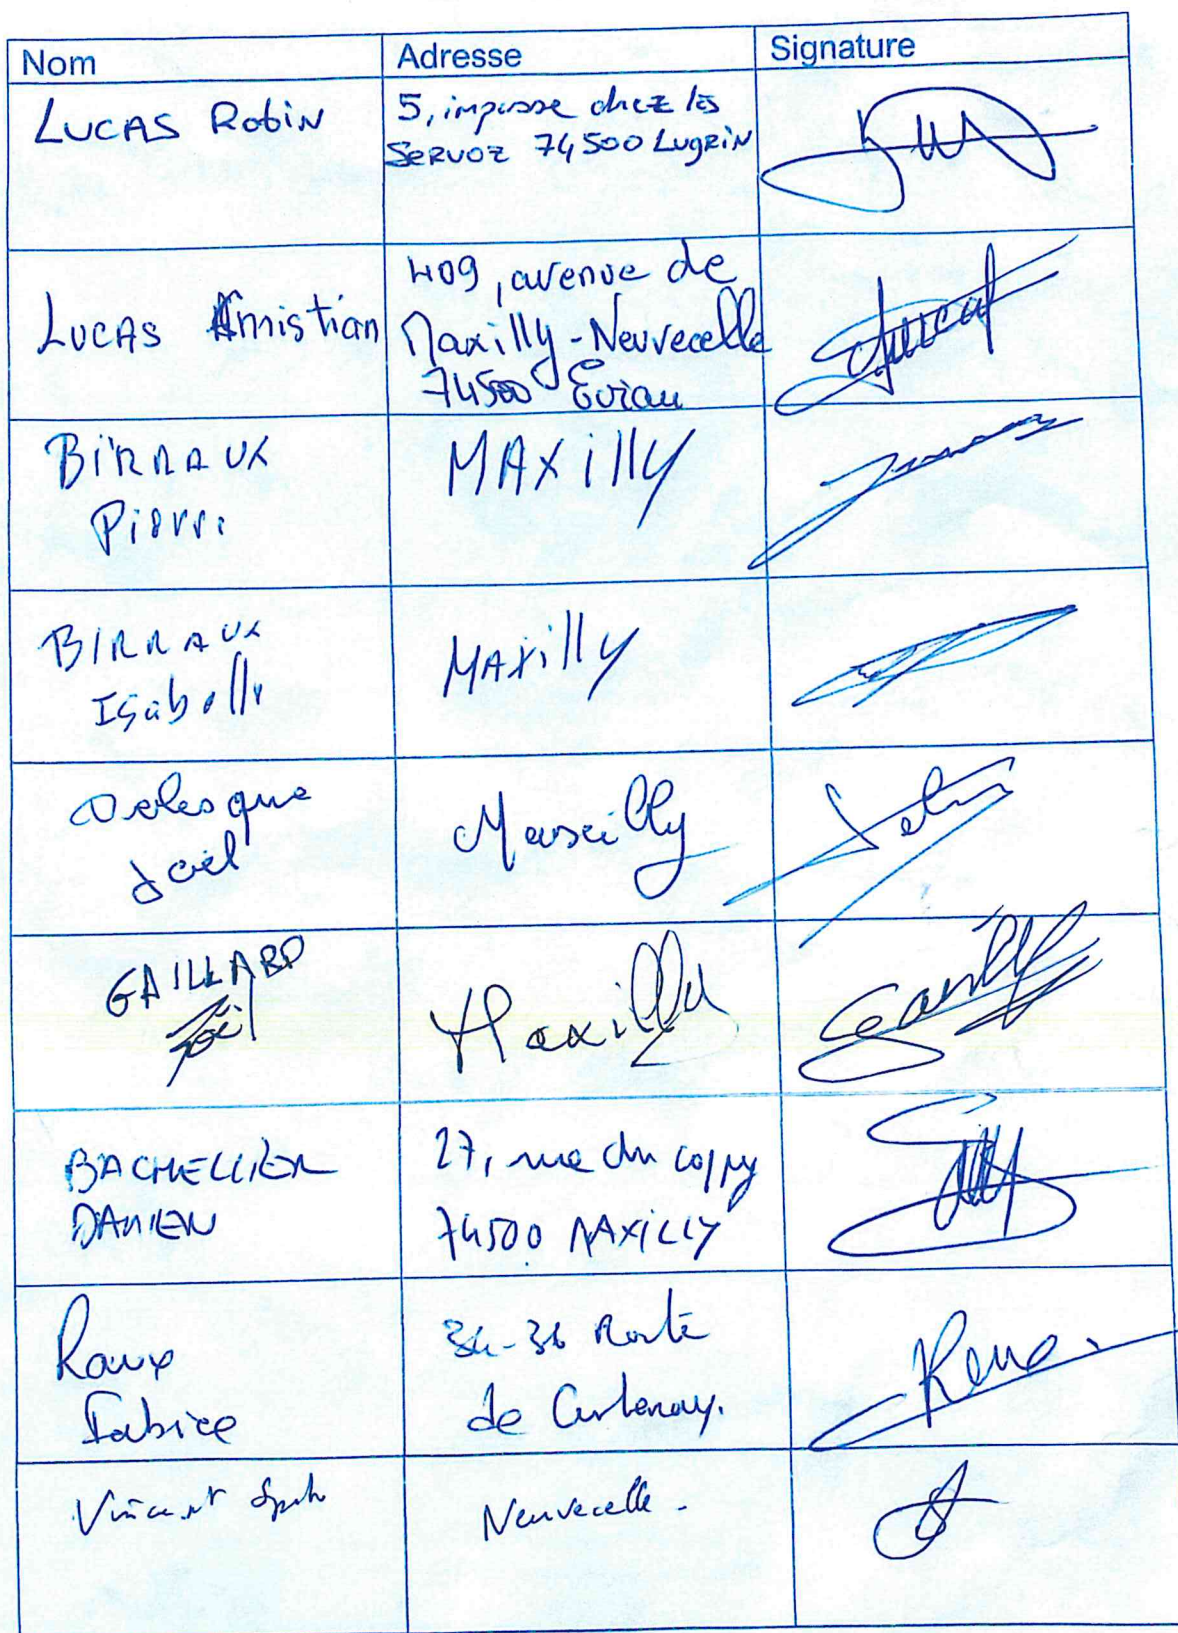 Nom Adresse Signature
LUCAS Robin
5, impasse chez les
Servoz 74500 Lugrin
LUCAS Christian
409, avenue de
Maxilly-Neuvecelle
74500 Evian
BIRRAUX
Pierre
MAXilly
BIRRAUX
Isabelle
MAxilly
Joël
GAILLARD
Joël
Maxilly
BACHELLIER
DAMIEN
27, rue du coppy
74500 MAXILLY
Roux
Fabrice
34-36 Route
de
Vincent
Neuvecelle.